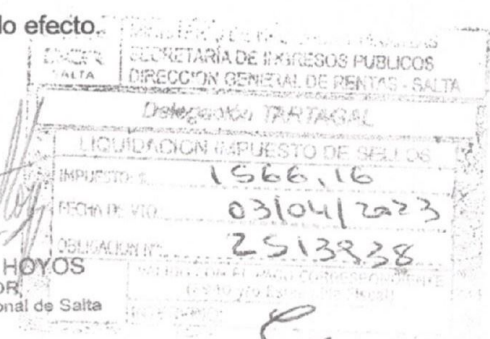 lo efecto.
SECRETARÍA DE INGRESOS PUBLICOS
SALTA
DIRECCION GENERAL DE RENTAS - SALTA
Delegación TARTAGAL
LIQUIDACION IMPUESTO DE SELLOS
IMPUESTO $ 1566,16
FECHA DE VTO 03/04/2023
OBLIGACION Nº 2513838
HOYOS
OR
onal de Salta